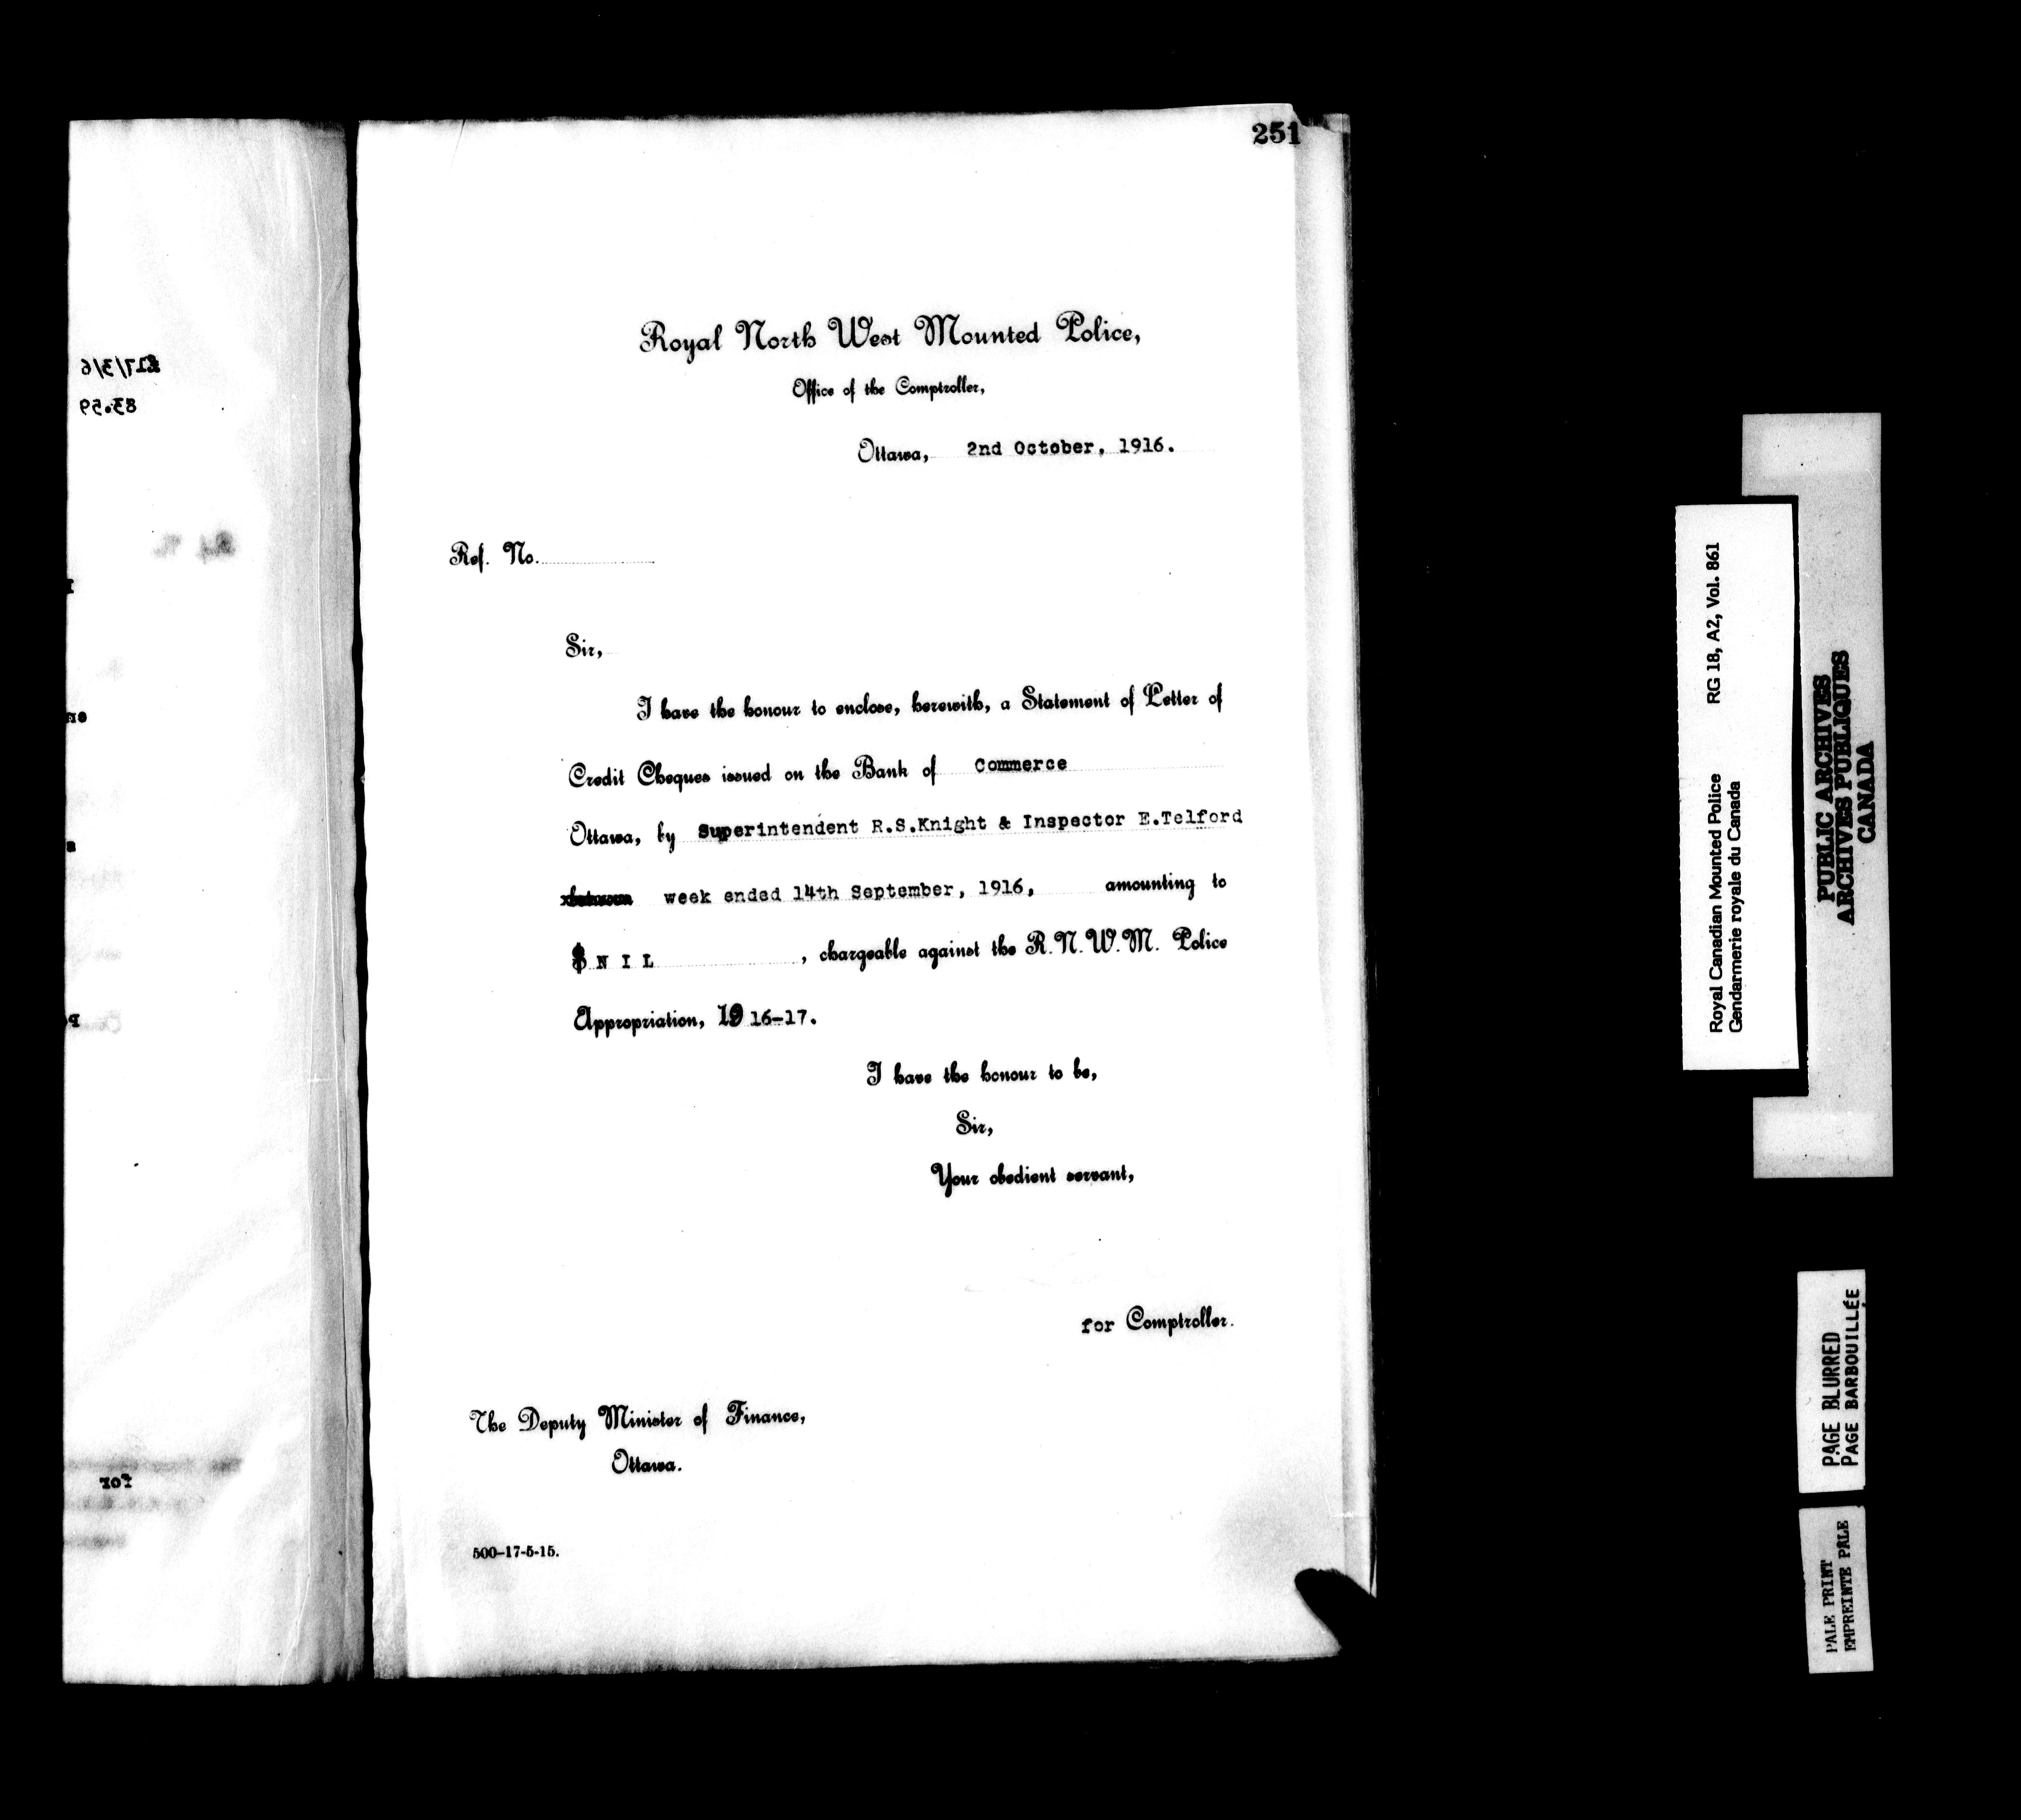 £17/3/6
83.59
for
251
Royal North West Mounted Police,
Office of the Comptroller,
Ottawa, 2nd October, 1916.
Ref. No.
Sir,
I have the honour to enclose, herewith, a Statement of Letter of
Credit Cheques issued on the Bank of Commerce
Ottawa, by Superintendent R.S.Knight & Inspector E.Telford
between week ended 14th September, 1916, amounting to
$ N I L , chargeable against the R. N. W. M. Police
Appropriation, 19 16-17.
I have the honour to be,
Sir,
Your obedient servant,
for Comptroller.
The Deputy Minister of Finance,
Ottawa.
500-17-5-15.
Royal Canadian Mounted Police RG 18, A2, Vol. 861
Gendarmerie royale du Canada
PUBLIC ARCHIVES
ARCHIVES PUBLIQUES
CANADA
PAGE BLURRED
PAGE BARBOUILLÉE
PALE PRINT
EMPREINTE PÂLE